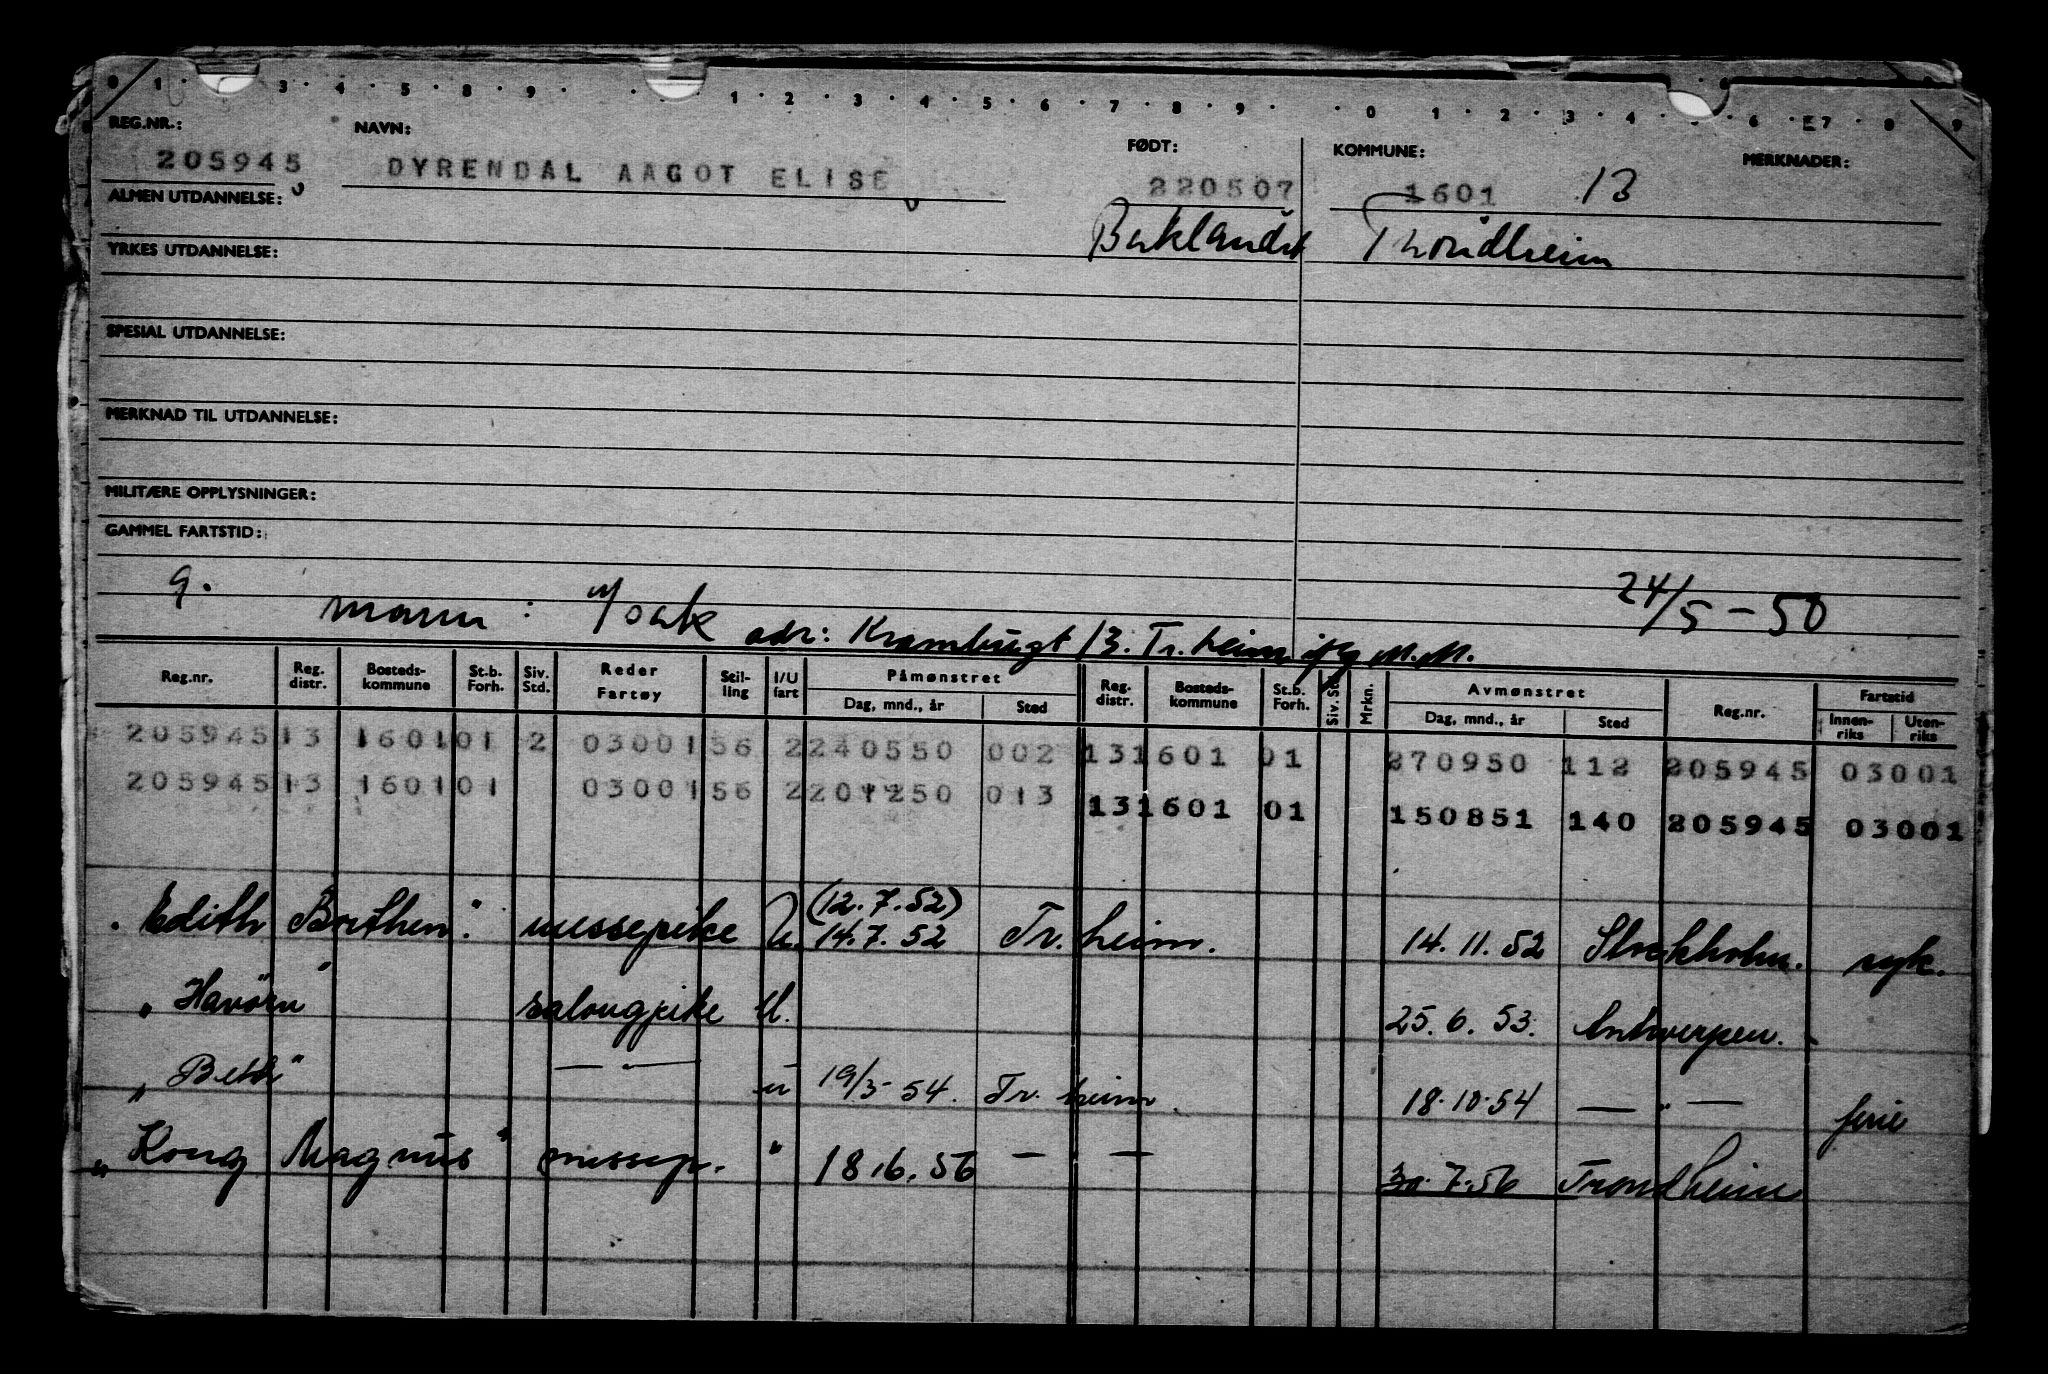 0 1 · 3 · 4 · 5 · 8 · 9 · · 1 · 2 · 3 · 4 · 5 · 6 · 7 · 8 · 9 · · 0 1 · 2 · 3 · 4 · · 6 · E7 · 8 · 9
REG.NR.: NAVN: FØDT: KOMMUNE: MERKNADER:
205945 DYRENDAL AAGOT ELISE 220507 1601 13
ALMEN UTDANNELSE:
Baklandet Trondheim
YRKES UTDANNELSE:
SPESIAL UTDANNELSE:
MERKNAD TIL UTDANNELSE:
MILITÆRE OPPLYSNINGER:
GAMMEL FARTSTID:
g. 24/5-50
adr: Krambugt 13. Tr.heim iflg M.M.
Reg.nr. Reg. distr. Bosteds-kommune St.b. Forh. Siv. Std. Reder Fartøy Stil-ling I/U fart Påmønstret Dag, mnd., år Sted Reg. distr. Bosteds-kommune St.b. Forh. Siv. St. Mrkn. Avmønstret Dag, mnd., år Sted Reg.nr. Fartstid Innen-riks Uten-riks
205945 13 1601 01 2 03001 56 2 240550 002 13 1601 01 270950 112 205945 03001
205945 13 1601 01 03001 56 2 201250 013 13 1601 01 150851 140 205945 03001
(12.7.52)
"Edith Borthen." messepike U. 14.7.52 Tr.heim. 14.11.52 Stockholm. syk.
"Havørn" salongpike U. 25.6.53. Antwerpen.
"Beth" — " — u 19/5-54. Tr.heim. 18.10.54 — " — ferie
"Kong Magnus" messep. " 18.6.56 — — 30.7.56 Trondheim